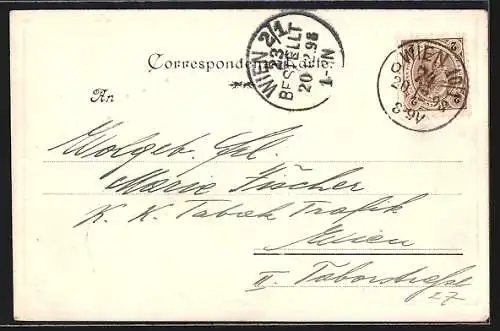 Correspondenz-Karte.
An
WIEN 2/1
23
BESTELLT
20. 2. 98
1-N
WIEN
20 2 98
2
Wolgeb. Frl.
Marie Fischer
K. K. Tabak Trafik
Wien
II. Taborstraße
27